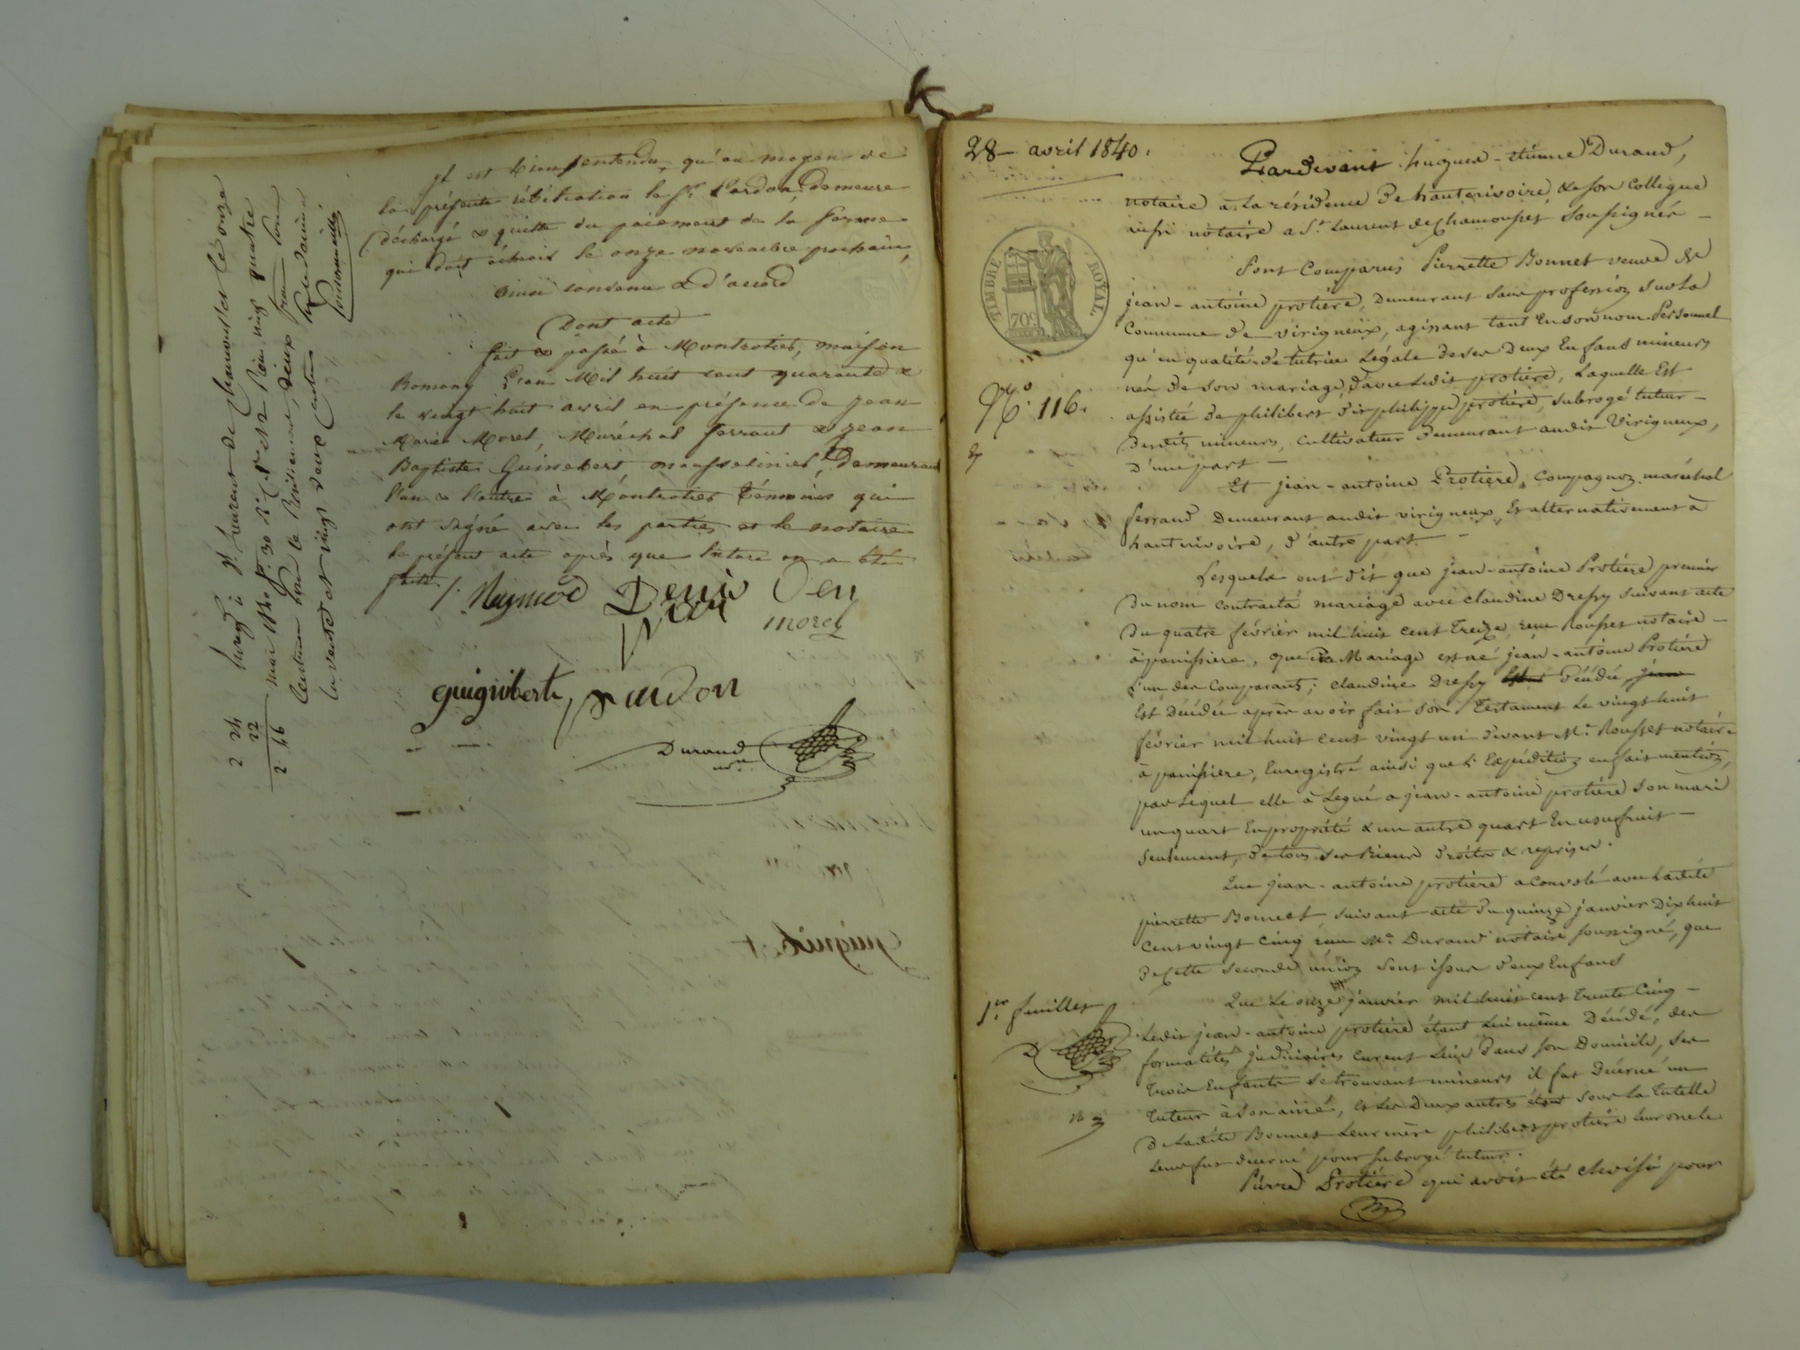 il est bien entendu, qu'au moyen de
la présente résiliation le Sr. Pardon, demeure
déchargé & quitte du paiement de la ferme
qui doit échoir le onze novembre prochain,
ainsi convenu & d'accord
Dont acte
fait & passé à Montrottier, maison
Romany l'an Mil huit cent quarante &
le vingt huit avril en présence de jean
Marie Morel, Maréchal ferrant & jean
Baptiste Guinebert mousselinier, demeurant
l'un & l'autre à Montrottier témoins qui
ont signé avec les parties et le notaire
le présent acte après que lecture en a été
faite ./.
Denis
morel
guignibert
pardon
Durand
nre
à St. Laurent de Chamousset le onze
mai 1840 f° 30
deux francs
2 24
22
2 46
28 avril 1840.
TIMBRE ROYAL
70c
N° 116.
1er. feuillet
D
Pardevant hugues-étienne Durand,
notaire à la résidence de hauterivoire, & son Collegue
aussi notaire a St. Laurent de Chamousset soussignés
Sont Comparus Pierrette Bonnet veuve de
jean-antoine protière, demeurant sans profession sur la
Commune de virigneux, agissant tant En son nom Personnel
qu'en qualité de tutrice Légale de ses deux Enfans mineurs
nés de son mariage d'avec Ledit protière, Laquelle Est
assistée de philibert dit philippe protière, subrogé tuteur
desdits mineurs, cultivateur demeurant audit Virigneux,
d'une part
Et jean-antoine Protière, Compagnon maréchal
ferrand demeurant audit virigneux, Et alternativement à
hauterivoire, d'autre part
Lesquels ont dit que jean-antoine Protière premier
du nom contracta mariage avec claudine Dressy suivant acte
du quatre février mil huit cent treize, reçu Rousset notaire
à panissiere, que de ce Mariage est né jean-antoine Protière
l'un des Comparants; claudine Dressy
Est décédée après avoir fait son Testament Le vingt huit
février mil huit cent vingt un devant Me. Rousset notaire
à panissiere, Enregistré ainsi que l'Expédition en fait mention,
par Lequel elle a Légué a jean-antoine protière son mari
un quart En propriété & un autre quart En usufruit
seulement, de tous ses biens droits & reprises.
Que jean-antoine protière a convolé avec Ladite
pierrette Bonnet suivant acte du quinze janvier Dix huit
cent vingt cinq reçu Me. Durand notaire soussigné, que
de Cette seconde union sont issus deux Enfans
Que Le onze janvier mil huit cent trente Cinq
Ledit jean-antoine protière étant Lui même Décédé, des
formalités judiciaires eurent Lieu dans son Domicile, ses
trois Enfants se trouvant mineurs il fut décerné un
tuteur à son ainé, & les Deux autres étant sous la tutelle
de Ladite Bonnet Leur mère philibert protière leur oncle
Leur fut décerné pour subrogé tuteur.
Pierre Protière qui avoit été choisi pour